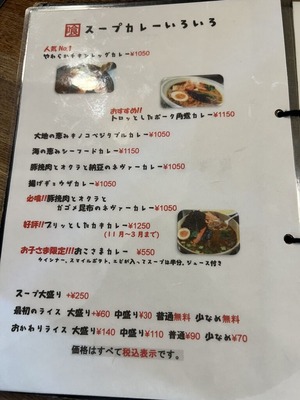 スープカレーいろいろ
人気No.1
やわらかチキンレッグカレー¥1050
おすすめ!!
トロッとしたポーク角煮カレー¥1150
大地の恵みキノコベジタブルカレー¥1050
海の恵みシーフードカレー¥1150
豚挽肉とオクラと納豆のネヴァーカレー¥1050
揚げギョウザカレー¥1050
必喰!!豚挽肉とオクラと
ガゴメ昆布のネヴァーカレー¥1050
好評!!プリッとしたカキカレー¥1250
(11月～3月まで)
お子さま限定!!!おこさまカレー ¥550
ウインナー、スマイルポテト、エビが入ってスープは半分、ジュース付き
スープ大盛り +¥250
最初のライス 大盛り+¥60 中盛り¥30 普通無料 少なめ無料
おかわりライス 大盛り¥140 中盛り¥110 普通¥90 少なめ¥70
価格はすべて税込表示です。